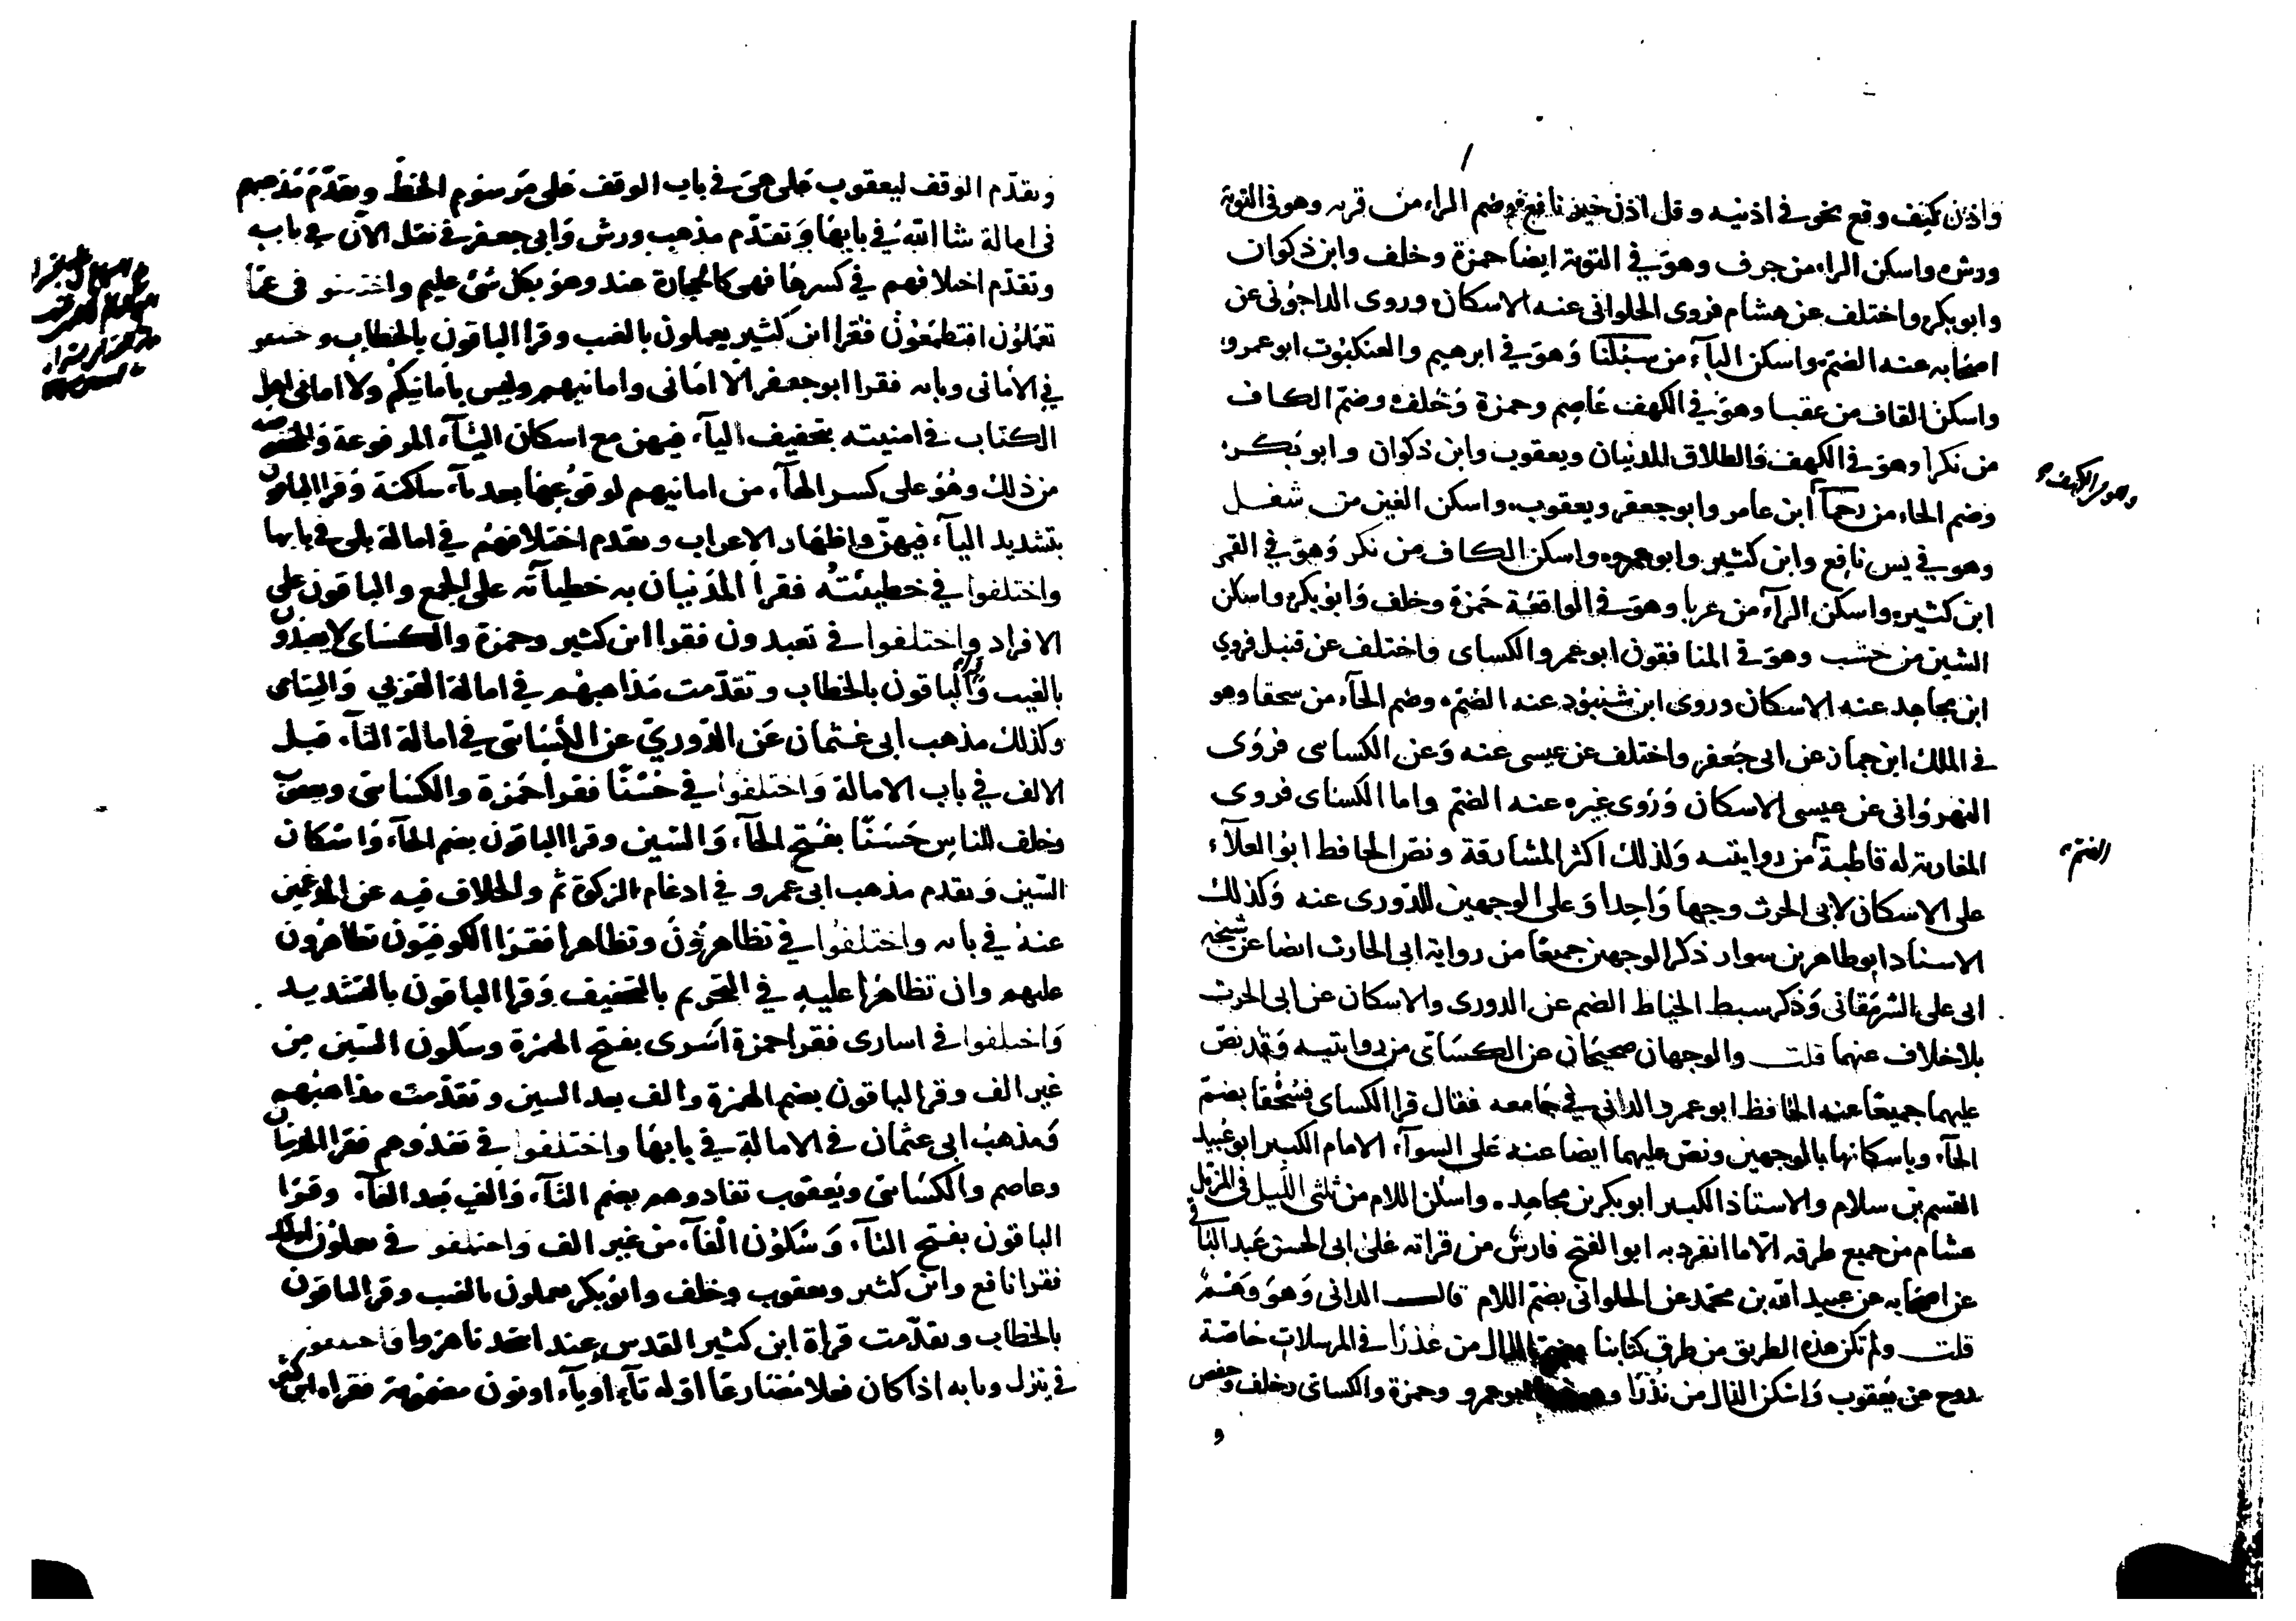 واذن كيف وقع نحو في اذنيه وقل اذن خير نافع وضم الراء من قربه وهو في التوبة
ورش واسكن الراء من جرف وهو في التوبة ايضا حمزة وخلف وابن ذكوان
وابو بكر واختلف عن هشام فروى الحلواني عنه الاسكان وروى الداجوني عن
اصحابه عنه الضم واسكن الباء من سبلنا وهو في ابرهيم والعنكبوت ابو عمرو
واسكن القاف من عقبا وهو في الكهف عاصم وحمزة وخلف وضم الكاف
من نكرا وهو في الكهف والطلاق المدنيان ويعقوب وابن ذكوان وابو بكر
وضم الحاء من رحما ابن عامر وابو جعفر ويعقوب واسكن الغين من شغل
وهو في الكهف
وهو في يس نافع وابن كثير وابو عمرو واسكن الكاف من نكر وهو في القمر
ابن كثير واسكن الراء من عربا وهو في الواقعة حمزة وخلف وابو بكر واسكن
الشين من خشب وهو في المنافقون ابو عمرو والكساى واختلف عن قنبل فروي
ابن مجاهد عنه الاسكان وروى ابن شنبوذ عنه الضم وضم الحاء من سحقا وهو
في الملك ابن جماز عن ابى جعفر واختلف عن عيسى عنه وعن الكساى فروى
النهرواني عن عيسى الاسكان وروى غيره عنه الضم واما الكساى فروى
المغاربة له قاطبة من روايتيه وكذلك اكثر المشارقة ونص الحافظ ابو العلاء
الضم
على الاسكان لابى الحرث وجها واحدا وعلى الوجهين للدورى عنه وكذلك
الاستاد ابو طاهر بن سوار ذكر الوجهين جميعا من رواية ابى الحارث ايضا عن شيخه
ابى على الشرمقاني وذكر سبط الخياط الضم عن الدورى والاسكان عن ابى الحرث
بلا خلاف عنهما قلت والوجهان صحيحان عن الكساى من روايتيه وقد نص
عليهما جميعا عنه الحافظ ابو عمرو الداني في جامعه فقال قرا الكساى فسحقا بضم
الحاء وباسكانها بالوجهين ونص عليهما ايضا عنه على السواء الامام الكبير ابو عبيد
القسم بن سلام والاستاذ الكبير ابو بكر بن مجاهد واسكن اللام من ثلثى الليل في المزمل
هشام من جميع طرقه الا ما انفرد به ابو الفتح فارس من قراته على ابى الحسن عبد الباقي
عن اصحابه عن عبيد الله بن محمد عن الحلواني بضم اللام قال الداني وهو وهم
قلت ولم تكن هذه الطريق من طرق كتابنا وضم الذال من عذرا في المرسلات خاصة
روح عن يعقوب واسكن الذال من نذرا ابو عمرو وحمزة والكساى وخلف وحفص
وتقدم الوقف ليعقوب على هي في باب الوقف على مرسوم الخط وتقدم مذهبهم
في امالة شا الله في بابها وتقدم مذهب ورش وابى جعفر في نقل الان في باب
وتقدم اختلافهم في كسرها فهى كالحجارة عند وهو بكل شئ عليم واختلفوا في عما
تعملون افتطمعون فقرا ابن كثير يعملون بالغيب وقرا الباقون بالخطاب واختلفوا
في الامانى وبابه فقرا ابو جعفر الا امانى وامانيهم وليس بامانيكم ولا امانى اهل
الكتاب في امنيته بتخفيف الياء فيهن مع اسكان الياء المرفوعة والمخفوضة
من ذلك وهو على كسر الهاء من امانيهم لوقوعها بعد ياء ساكنة وقرا الباقون
بتشديد الياء فيهن واظهار الاعراب وتقدم اختلافهم في امالة بلى في بابها
واختلفوا في خطيئته فقرا المدنيان به خطيآته على الجمع والباقون على
الافراد واختلفوا في تعبدون فقرا ابن كثير وحمزة والكساى لا يعبدون
بالغيب وقرا الباقون بالخطاب وتقدمت مذاهبهم في امالة القربي واليتامى
وكذلك مذهب ابى عثمان عن الدوري عن الكساى في امالة التاء قبل
الالف في باب الامالة واختلفوا في حسنا فقرا حمزة والكساى ويعقوب
وخلف للناس حسنا بفتح الحاء والسين وقرا الباقون بضم الحاء واسكان
السين وتقدم مذهب ابى عمرو في ادغام الزكوة ثم والخلاف فيه عن المدغمين
عنه في بابه واختلفوا في تظاهرون وتظاهرا فقرا الكوفيون تظاهرون
عليهم وان تظاهرا عليه في التحريم بالتخفيف وقرا الباقون بالتشديد
واختلفوا في اسارى فقرا حمزة اسرى بفتح الهمزة وسكون السين من
غير الف وقرا الباقون بضم الهمزة والف بعد السين وتقدمت مذاهبهم
ومذهب ابى عثمان في الامالة في بابها واختلفوا في تفدوهم فقرا المدنيان
وعاصم والكساى ويعقوب تفادوهم بضم التاء والف بعد الفاء وقرا
الباقون بفتح التاء وسكون الفاء من غير الف واختلفوا في يعملون اولئك
فقرا نافع وابن كثير ويعقوب وخلف وابو بكر يعملون بالغيب وقرا الباقون
بالخطاب وتقدمت قراة ابن كثير القدس عند اتتخذنا هزوا واختلفوا
في ينزل وبابه اذا كان فعلا مضارعا اوله تاء او ياء او نون مضمومة فقراه ابن كثير